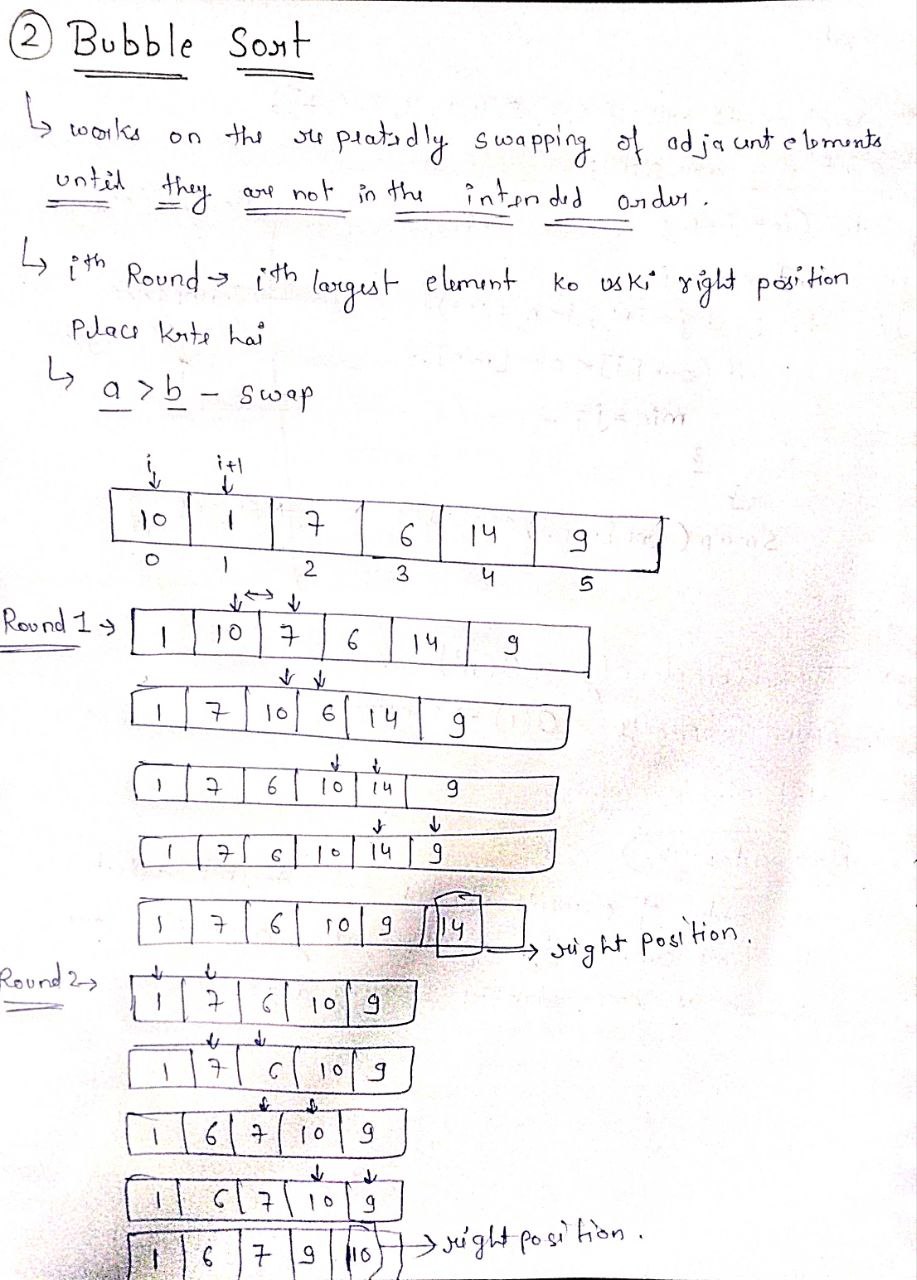 ② Bubble Sort
↳ works on the repeatedly swapping of adjacent elements
until they are not in the intended order.
↳ ith Round → ith largest element ko uski right position
Place krte hai
↳ a > b - swap
i i+1
10 1 7 6 14 9
0 1 2 3 4 5
Round 1 → 1 10 7 6 14 9
1 7 10 6 14 9
1 7 6 10 14 9
1 7 6 10 14 9
1 7 6 10 9 14 → right position.
Round 2 → 1 7 6 10 9
1 7 6 10 9
1 6 7 10 9
1 6 7 10 9
1 6 7 9 10 → right position.